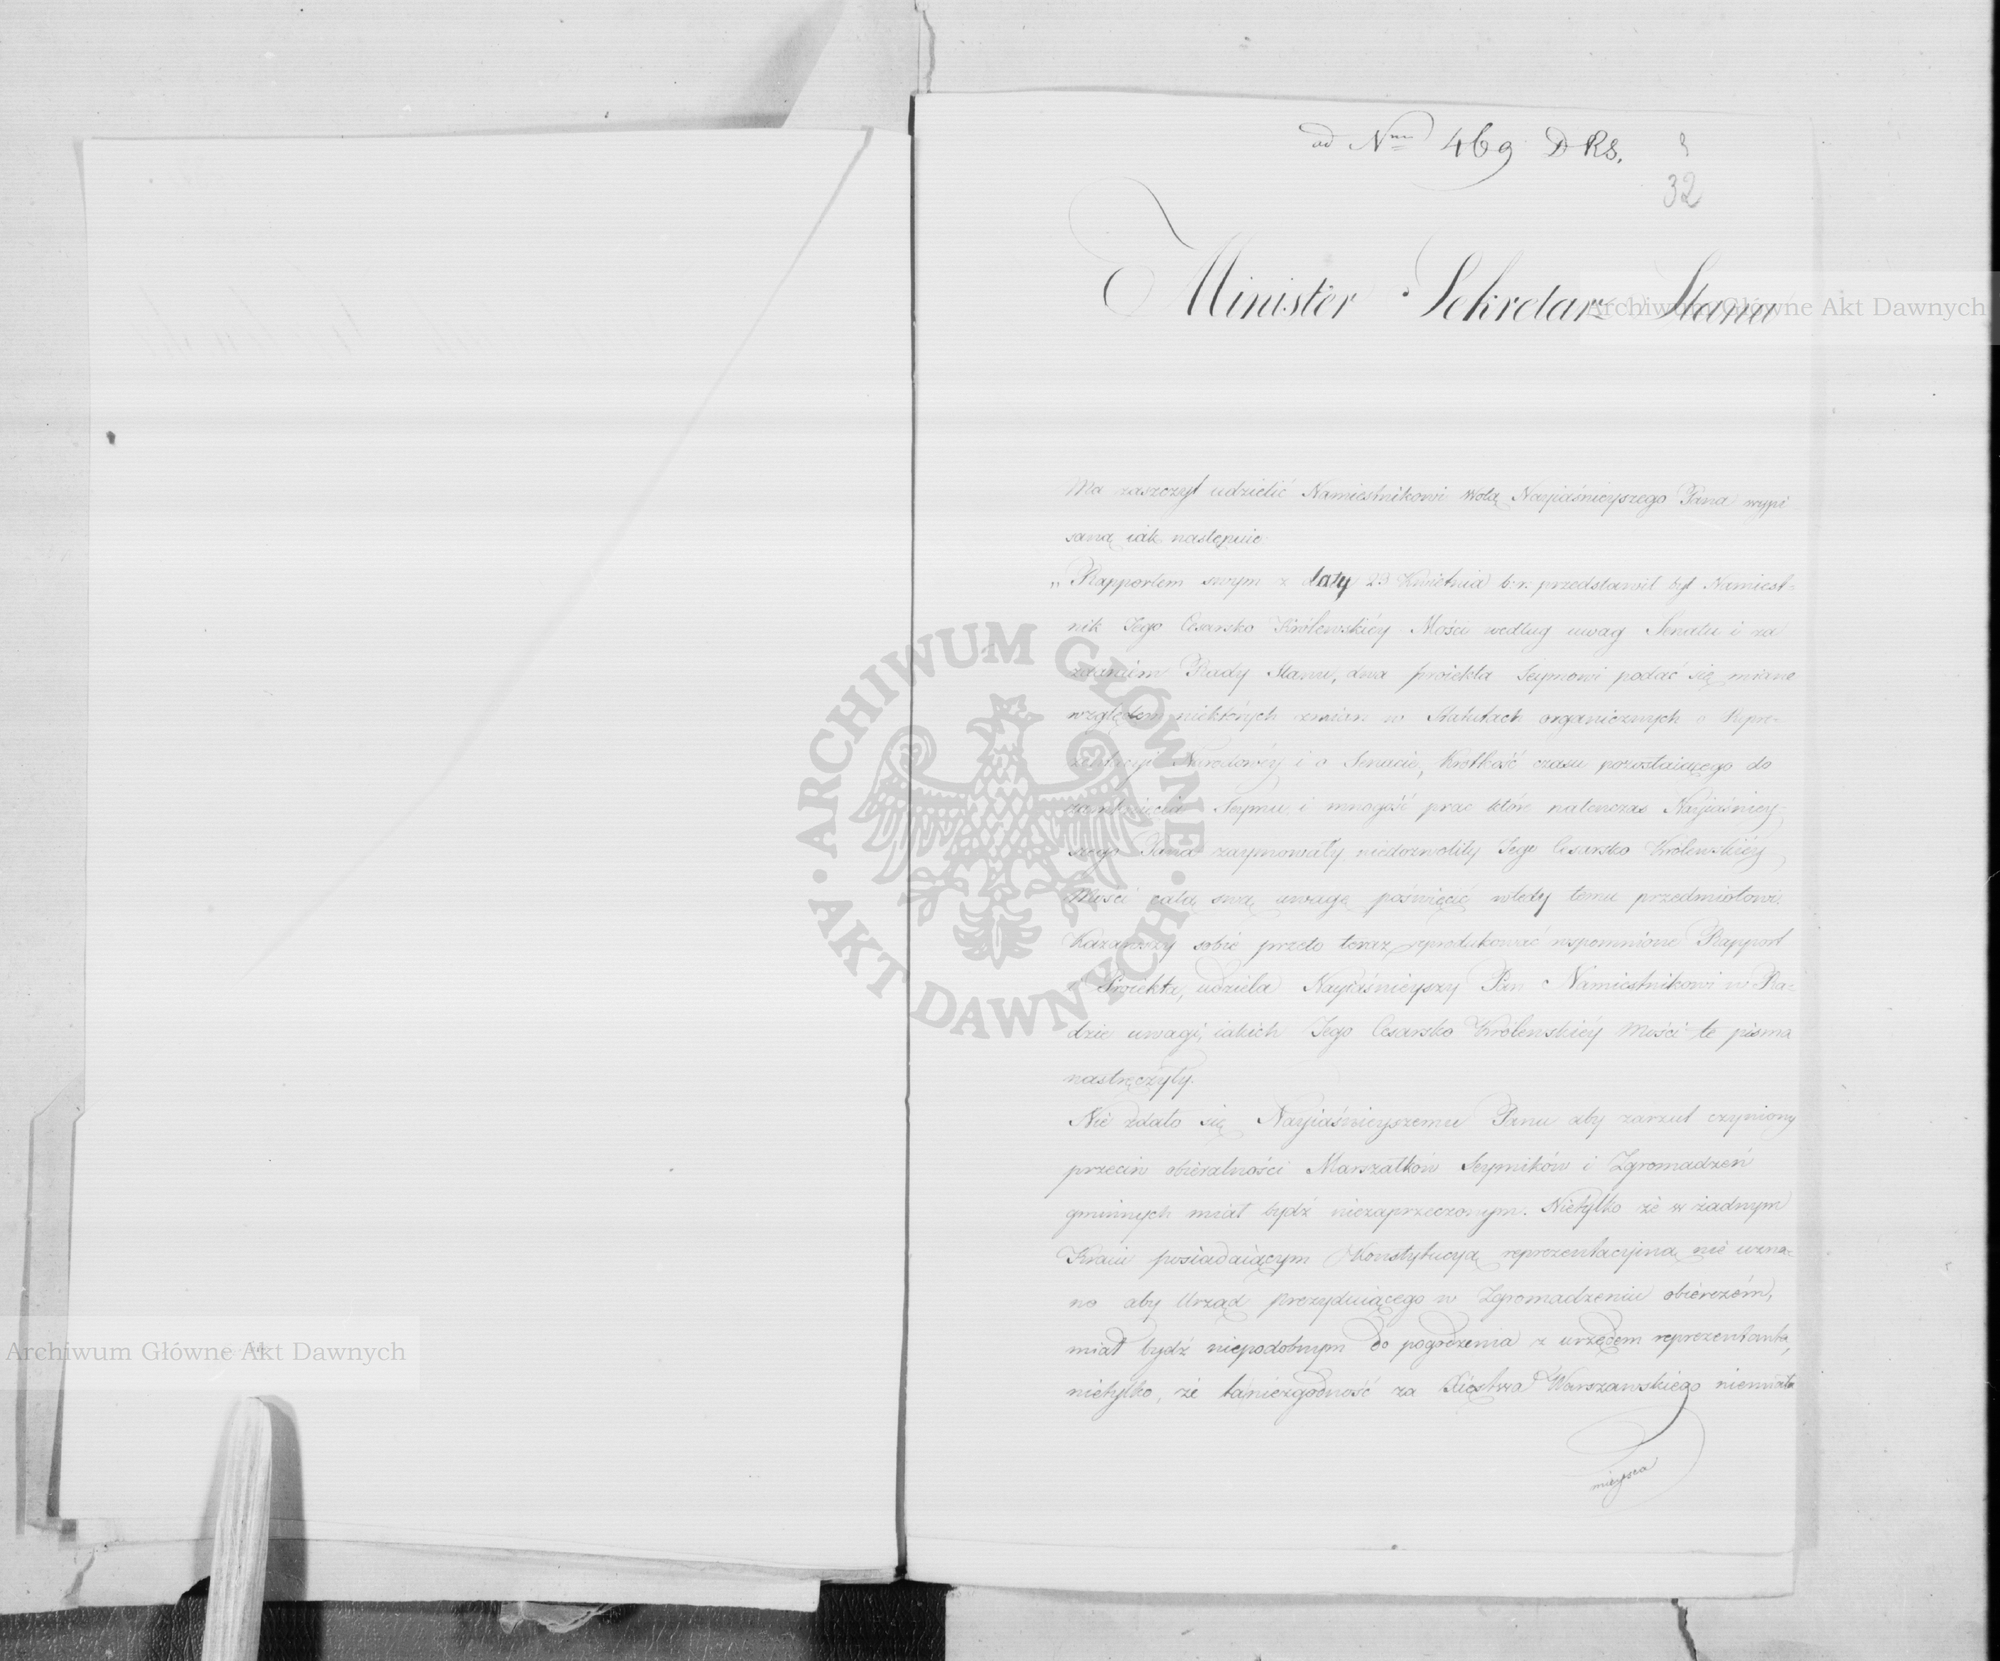 ad Nrm 469 D RS.
32
Minister Sekretarz Stanu
Archiwum Główne Akt Dawnych
Ma zaszczyt udzielić Namiestnikowi wolą Nayiaśnieyszego Pana wypi
saną iak następuie
„Rapportem swym z daty 23 Kwietnia b.r. przedstawił był Namiest-
nik Jego Cesarsko Królewskiéy Mości według uwag Senatu i za
zdaniem Rady Stanu, dwa proiekta Seymowi podać się miane
względem niektórych zmian w Statutach organicznych o Repre-
zentacyi Narodowéy i o Senacie, krótkość czasu pozostaiącego do
zamknięcia Seymu i mnogość prac które natenczas Nayiaśniey-
szego Pana zaymowały niedozwoliły Jego Cesarsko Królewskiéy
Mości całą swą uwagę poświęcić wtedy temu przedmiotowi.
Kazawszy sobie przeto teraz reprodukować wspomnione Rapport
i Proiekta, udziela Nayiaśnieyszy Pan Namiestnikowi w Ra-
dzie uwagi, iakich Jego Cesarsko Królewskiéy Mości te pisma
nastręczyły.
Nie zdało się Nayiaśnieyszemu Panu aby zarzut czyniony
przeciw obieralności Marszałków Seymików i Zgromadzeń
gminnych miał bydź niezaprzeczonym. Nietylko że w żadnym
Kraiu posiadaiącym Konstytucyą reprezentacyiną nie uzna-
no aby Urząd prezyduiącego w Zgromadzeniu obierczém,
miał bydź niepodobnym do pogodzenia z urzędem reprezentanta,
nietylko, że ta niezgodność za Xięstwa Warszawskiego niemiała
mieysca
Archiwum Główne Akt Dawnych
ARCHIWUM GŁÓWNE
AKT DAWNYCH